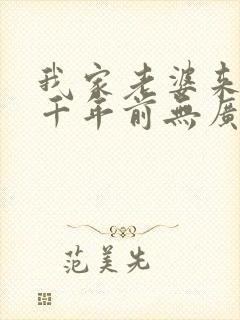 我家老婆来
千年前無廣
范美先